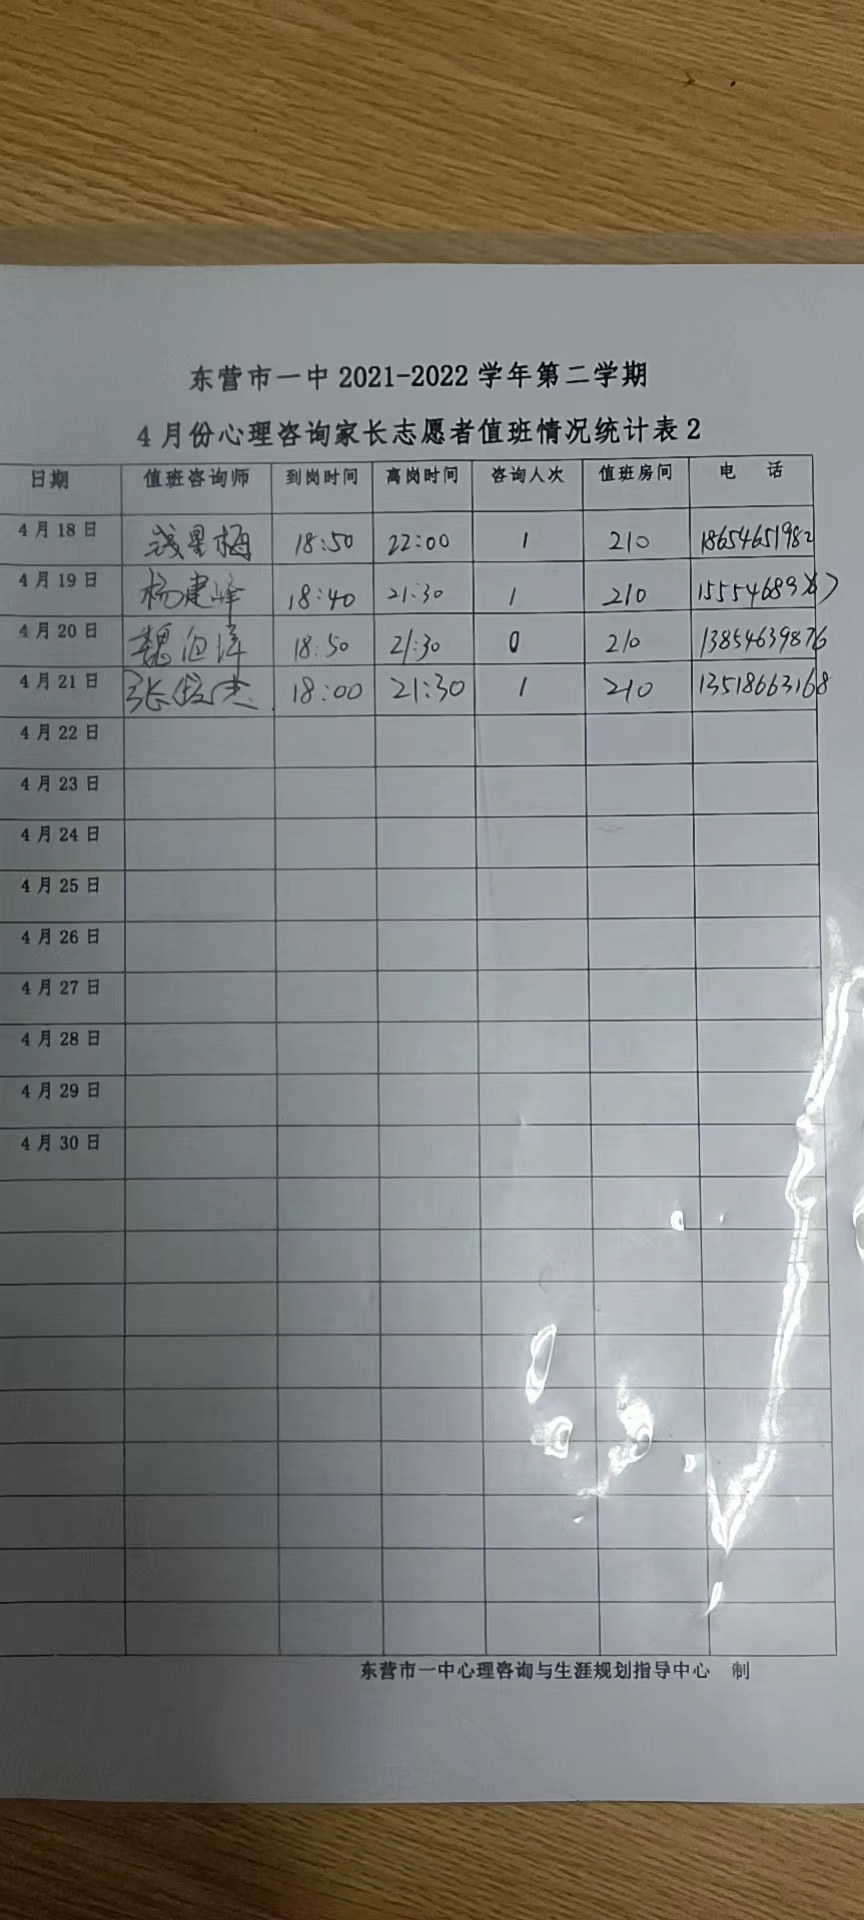 东营市一中 2021-2022 学年第二学期
4 月份心理咨询家长志愿者值班情况统计表 2
日期 值班咨询师 到岗时间 离岗时间 咨询人次 值班房间 电 话
4 月 18 日 星梅 18:50 22:00 1 210 18654651982
4 月 19 日 杨建峰 18:40 21:30 1 210
4 月 20 日 魏海洋 18:50 21:30 0 210 13854639876
4 月 21 日 张俊杰 18:00 21:30 1 210 13518663168
4 月 22 日
4 月 23 日
4 月 24 日
4 月 25 日
4 月 26 日
4 月 27 日
4 月 28 日
4 月 29 日
4 月 30 日
东营市一中心理咨询与生涯规划指导中心 制